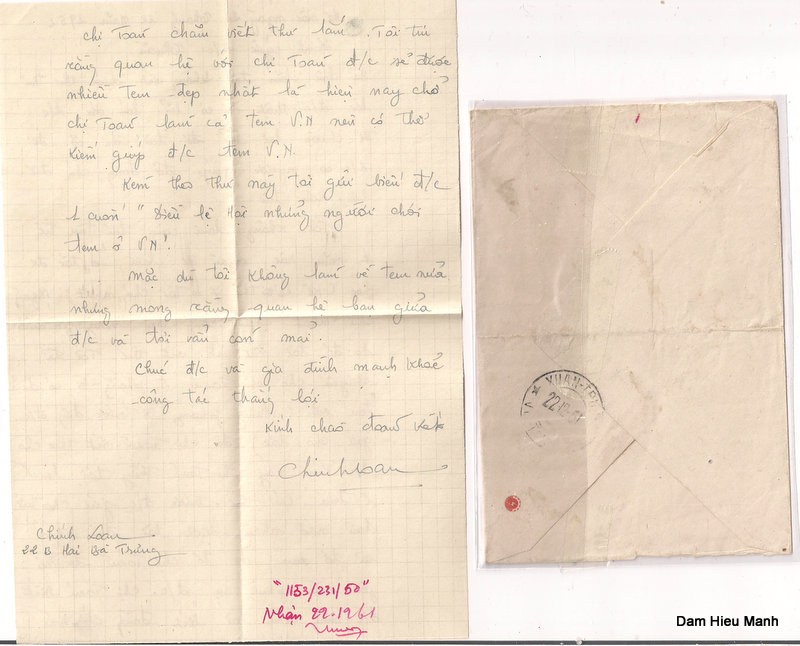 chị Toàn chăm viết thư lắm. Tôi tin
rằng quan hệ với chị Toàn đ/c sẽ được
nhiều tem đẹp nhất là hiện nay chỗ
chị Toàn làm cả tem V.N nên có thể
kiếm giúp đ/c tem V.N.
Kèm theo thư này tôi gửi biếu đ/c
1 cuốn " Điều lệ Hội những người chơi
tem ở V.N".
Mặc dù tôi không làm về tem nữa
nhưng mong rằng quan hệ bạn giữa
đ/c và tôi vẫn còn mãi.
Chúc đ/c và gia đình mạnh khoẻ
công tác thắng lợi
Kính chào đoàn kết
Chinh Loan
Chinh Loan
22 B Hai Bà Trưng
"1153/231/50"
Nhận 22-1961
XUAN-
22
Dam Hieu Manh